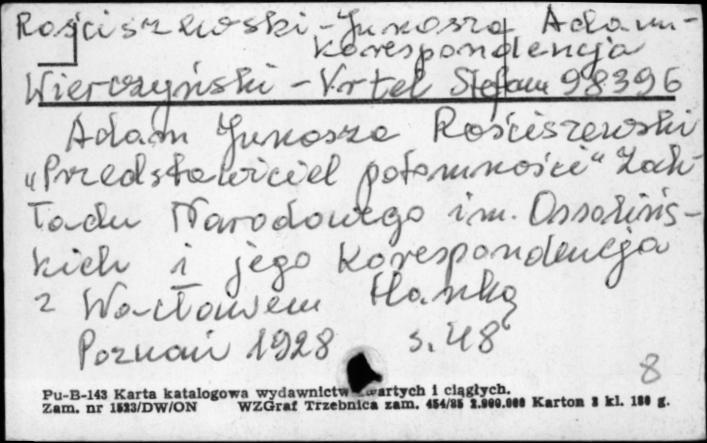 Rościszewski-Junosza Adam-
korespondencja
Wierczyński-Vrtel Stefan 98396
Adam Junosza Rościszewski
„Przedstawiciel potomności" Zak-
ładu Narodowego im. Ossolińs-
kich i jego korespondencja
z Wacławem Hanką
Poznań 1928 s. 48
8
Pu-B-143 Karta katalogowa wydawnictw zwartych i ciągłych.
Zam. nr 1523/DW/ON WZGraf Trzebnica zam. 454/85 2.000.000 Karton 2 kl. 180 g.